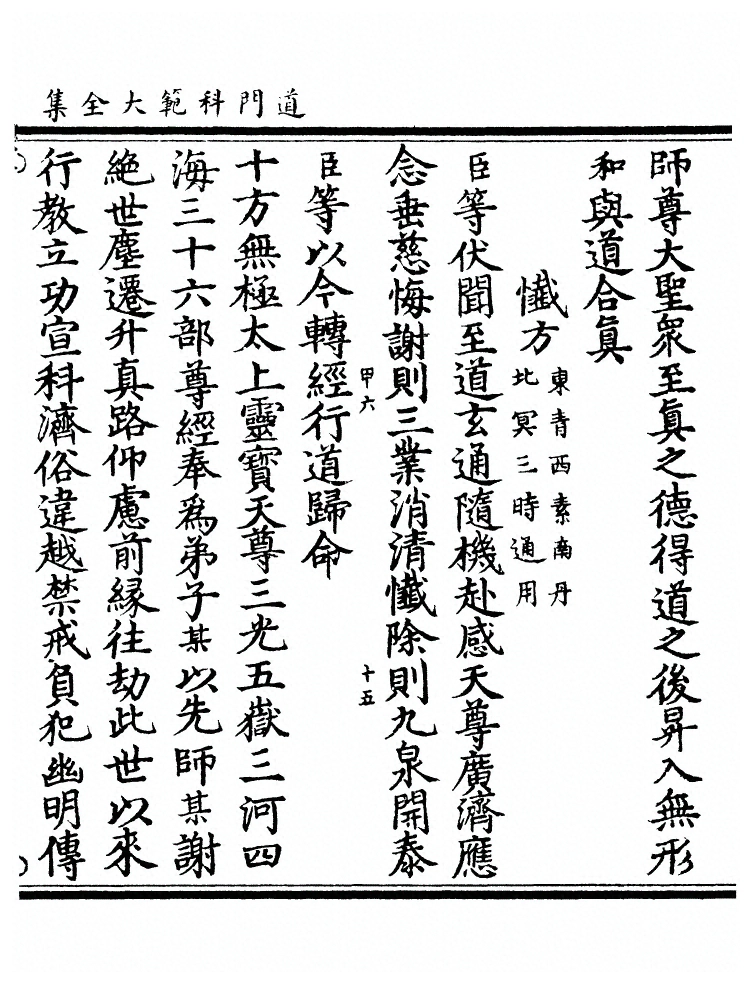 道門科範大全集
師尊大聖衆至眞之德得道之後昇入無形
和與道合眞
懺方東青西素南丹
北冥三時通用
臣等伏聞至道玄通隨機赴感天尊廣濟應
念垂慈悔謝則三業消清懺除則九泉開泰
甲六
十五
臣等以今轉經行道歸命
十方無極太上靈寶天尊三光五嶽三河四
海三十六部尊經奉爲弟子某以先師某謝
絕世塵遷升真路仰慮前緣往劫此世以來
行教立功宣科濟俗違越禁戒負犯幽明傳